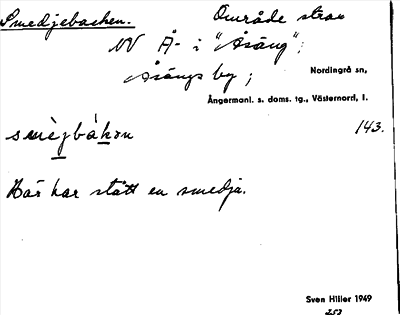 Smedjebacken. Område strax
NV Å- i "Åsäng";
Åsängs by; Nordingrå sn,
Ångermanl. s. doms. tg., Västernord, l.
smèjbàkən 143.
Här har stått en smedja.
Sven Hiller 1949
253